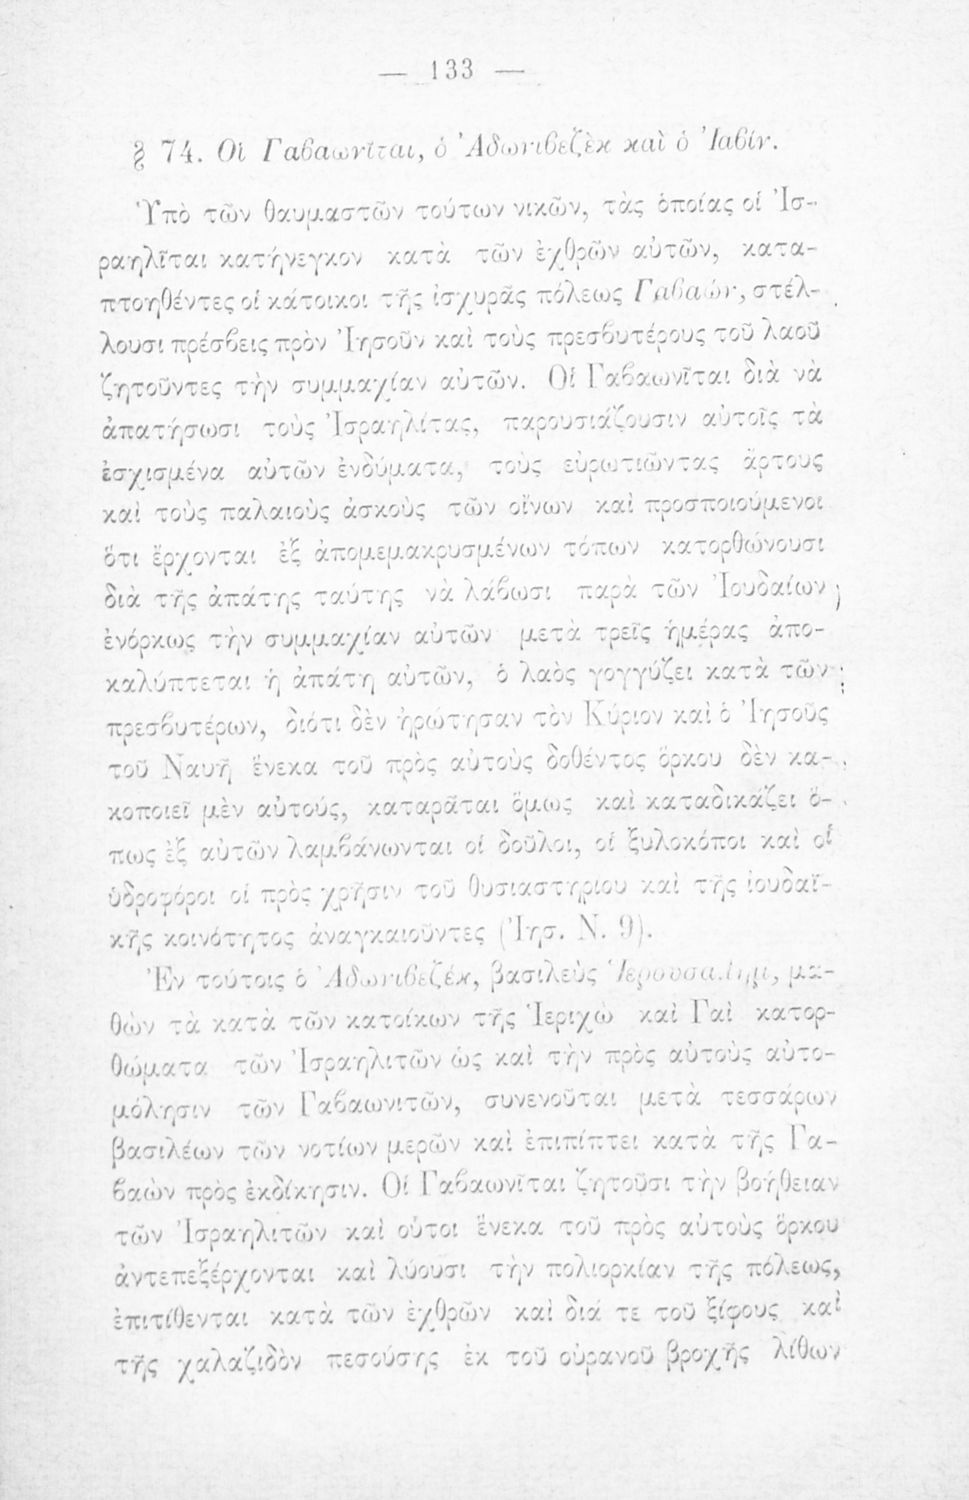 — 133 —
§ 74. Οἱ Γαβαωνῖται, ὁ Ἀδωνιβεζὲκ καὶ ὁ Ἰαβίν.
Ὑπὸ τῶν θαυμαστῶν τούτων νικῶν, τὰς ὁποίας οἱ Ἰσ-
ραηλῖται κατήνεγκον κατὰ τῶν ἐχθρῶν αὐτῶν, κατα-
πτοηθέντες οἱ κάτοικοι τῆς ἰσχυρᾶς πόλεως Γαβαών, στέλ-
λουσι πρέσβεις πρὸν Ἰησοῦν καὶ τοὺς πρεσβυτέρους τοῦ λαοῦ
ζητοῦντες τὴν συμμαχίαν αὐτῶν. Οἱ Γαβαωνῖται διὰ νὰ
ἀπατήσωσι τοὺς Ἰσραηλίτας, παρουσιάζουσιν αὐτοῖς τὰ
ἐσχισμένα αὐτῶν ἐνδύματα, τοὺς εὐρωτιῶντας ἄρτους
καὶ τοὺς παλαιοὺς ἀσκοὺς τῶν οἴνων καὶ προσποιούμενοι
ὅτι ἔρχονται ἐξ ἀπομεμακρυσμένων τόπων κατορθώνουσι
διὰ τῆς ἀπάτης ταύτης νὰ λάβωσι παρὰ τῶν Ἰουδαίων
ἐνόρκως τὴν συμμαχίαν αὐτῶν μετὰ τρεῖς ἡμέρας ἀπο-
καλύπτεται ἡ ἀπάτη αὐτῶν, ὁ λαὸς γογγύζει κατὰ τῶν
πρεσβυτέρων, διότι δὲν ἠρώτησαν τὸν Κύριον καὶ ὁ Ἰησοῦς
τοῦ Ναυῆ ἕνεκα τοῦ πρὸς αὐτοὺς δοθέντος ὅρκου δὲν κα-
κοποιεῖ μὲν αὐτούς, καταρᾶται ὅμως καὶ καταδικάζει ὅ-
πως ἐξ αὐτῶν λαμβάνωνται οἱ δοῦλοι, οἱ ξυλοκόποι καὶ οἱ
ὑδροφόροι οἱ πρὸς χρῆσιν τοῦ θυσιαστηρίου καὶ τῆς ἰουδαϊ-
κῆς κοινότητος ἀναγκαιοῦντες (Ἰησ. Ν. 9).
Ἐν τούτοις ὁ Ἀδωνιβεζέκ, βασιλεὺς Ἱερουσαλήμ, μα-
θὼν τὰ κατὰ τῶν κατοίκων τῆς Ἱεριχὼ καὶ Γαὶ κατορ-
θώματα τῶν Ἰσραηλιτῶν ὡς καὶ τὴν πρὸς αὐτοὺς αὐτο-
μόλησιν τῶν Γαβαωνιτῶν, συνενοῦται μετὰ τεσσάρων
βασιλέων τῶν νοτίων μερῶν καὶ ἐπιπίπτει κατὰ τῆς Γα-
βαὼν πρὸς ἐκδίκησιν. Οἱ Γαβαωνῖται ζητοῦσι τὴν βοήθειαν
τῶν Ἰσραηλιτῶν καὶ οὗτοι ἕνεκα τοῦ πρὸς αὐτοὺς ὅρκου
ἀντεπεξέρχονται καὶ λύουσι τὴν πολιορκίαν τῆς πόλεως,
ἐπιτίθενται κατὰ τῶν ἐχθρῶν καὶ διά τε τοῦ ξίφους καὶ
τῆς χαλαζιδὸν πεσούσης ἐκ τοῦ οὐρανοῦ βροχῆς λίθων